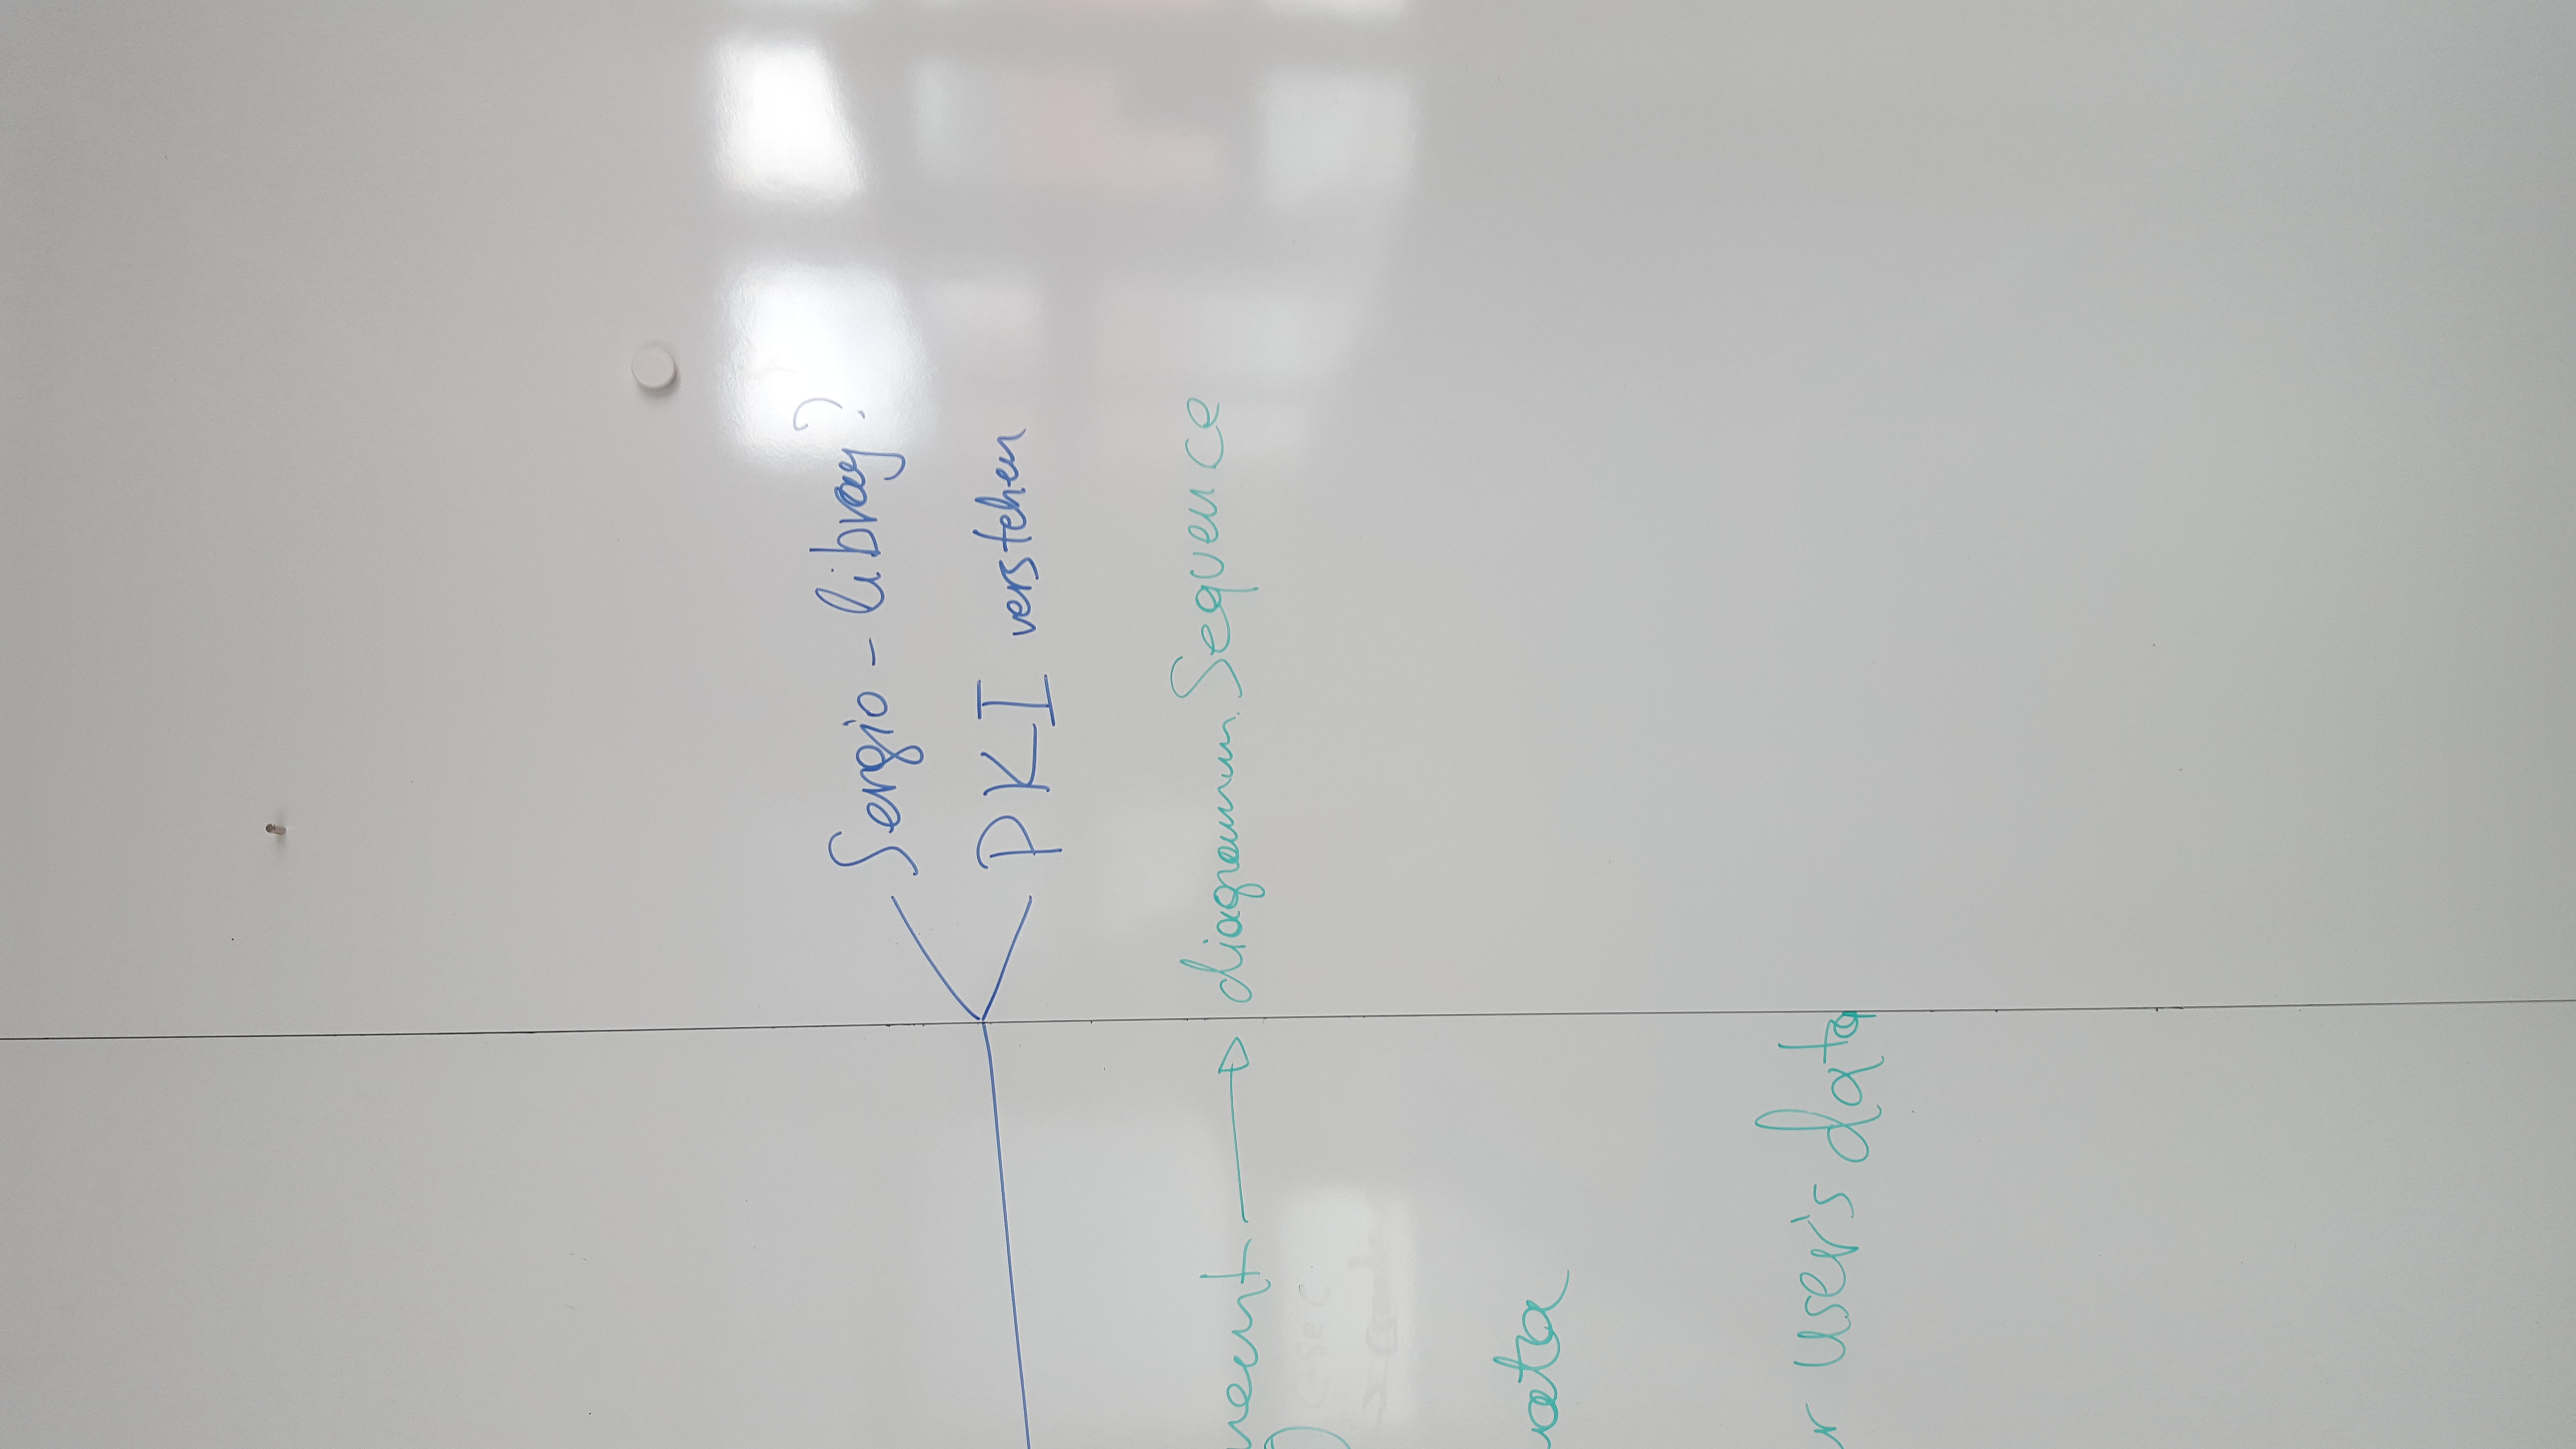 Sergio - libray?
PKI verstehen
diagramm Sequence
user's data